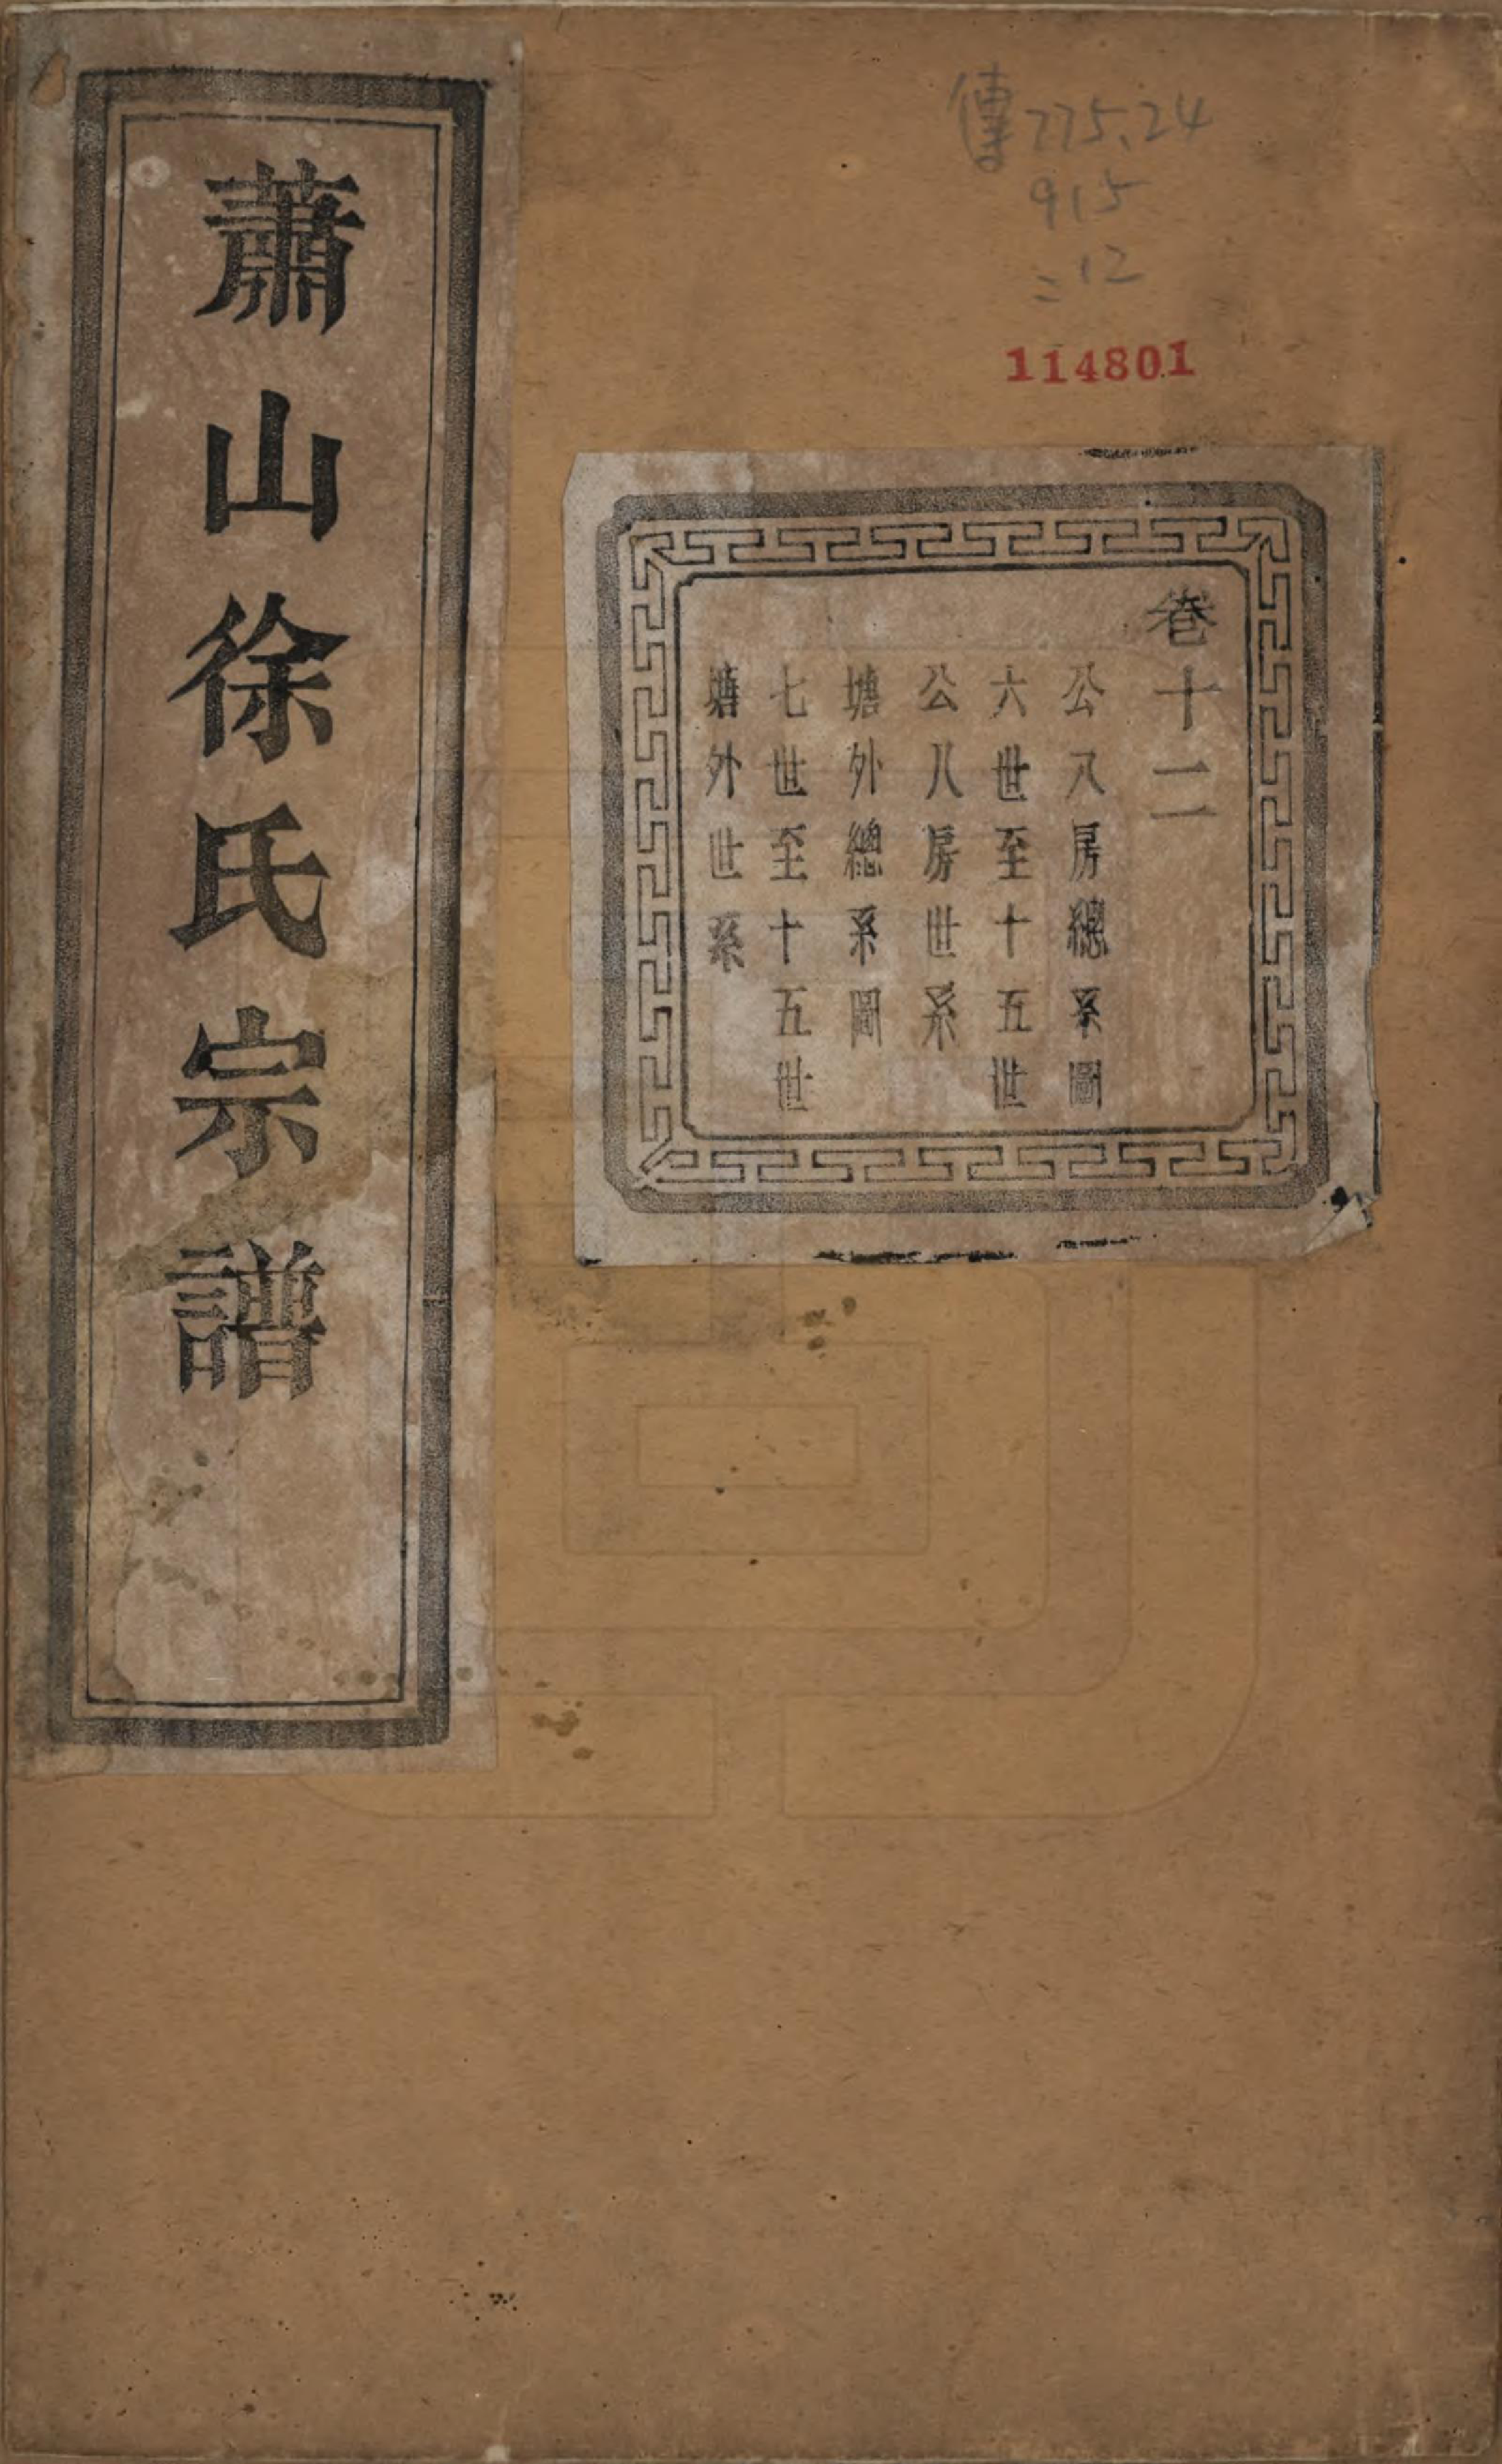 蕭山徐氏宗譜
傳775.24
915
:12
114801
卷十二
公八房總系圖
六世至十五世
公八房世系
塘外總系圖
七世至十五世
塘外世系